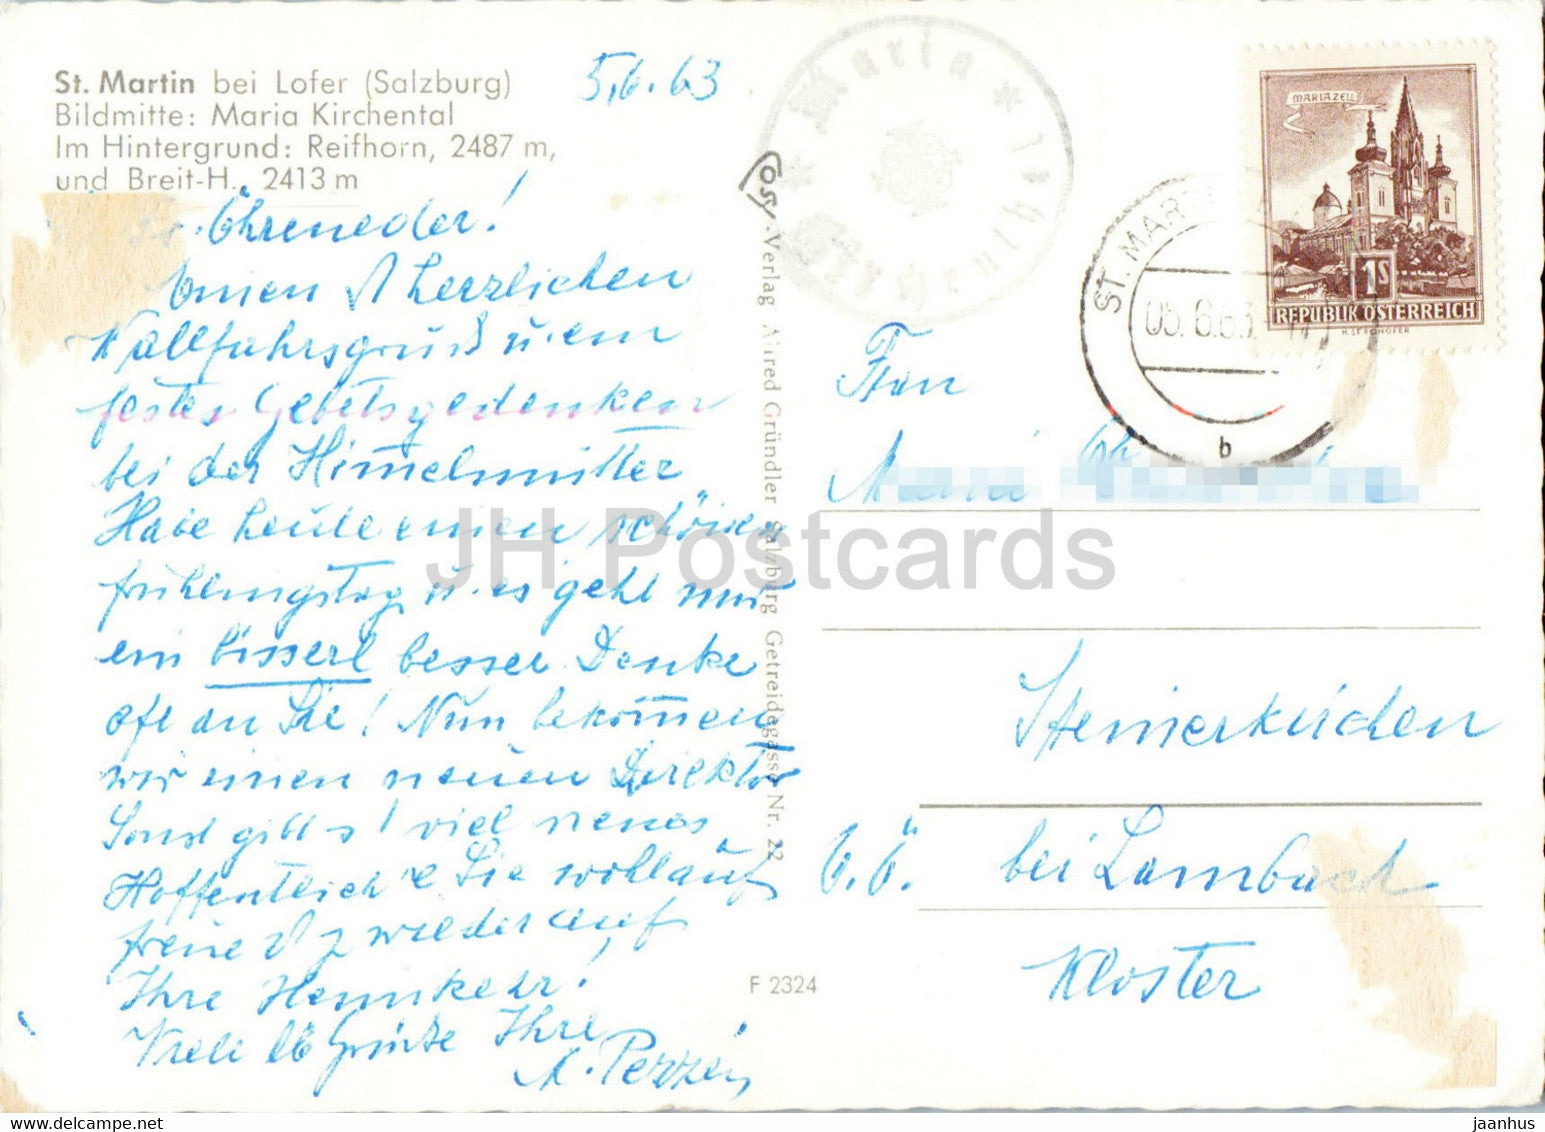 St. Martin bei Lofer (Salzburg)
Bildmitte: Maria Kirchental
Im Hintergrund: Reifhorn, 2487 m,
und Breit-H., 2413 m
5.6.63
Öhreneder!
Einen herzlichen
Wallfahrsgruß u. ein
festes Gebetsgedenken
bei der Himmelmutter
Habe heute einen schönen
frühlingstag u. es geht mir
ein bisserl besser Denke
oft an Sie! Nun bekom̅en
wir einen neuen Direktor
Sonst gibt s! viel neues
Hoffentlich Sie wohlauf
freue wieder auf
Ihre Heimkehr!
Viele lb Grüße Ihre
Cosy-Verlag Alfred Gründler Salzburg Getreidegasse Nr. 22
F 2324
Maria
Kirchental
ST. MARTIN
05.6.63
b
MARIAZELL
1S
REPUBLIK ÖSTERREICH
H. STROHOFER
Frau
Maria
Steinerkirchen
O.Ö. bei Lambach
Kloster
JH Postcards
jaanhus.ee